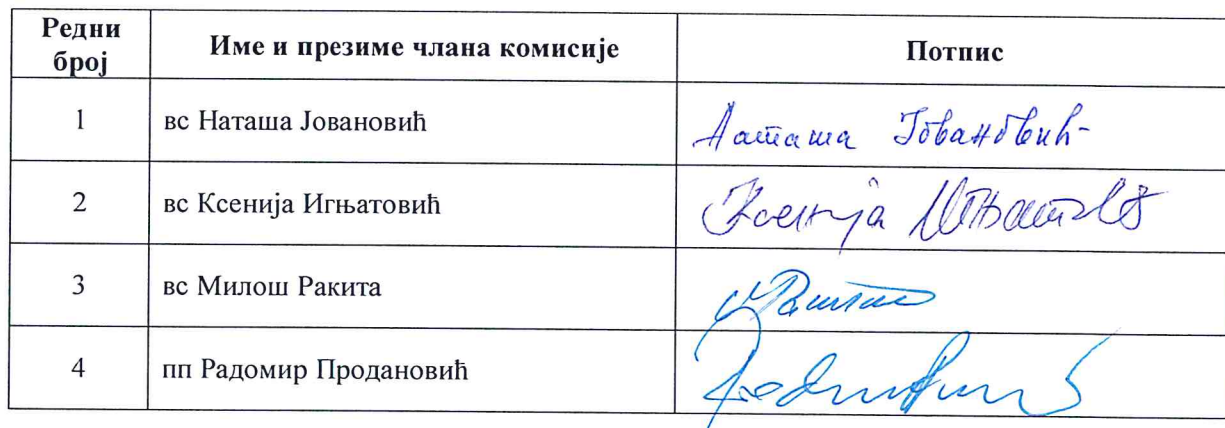 Редни број
Име и презиме члана комисије
Потпис
1
вс Наташа Јовановић
Наташа Јовановић
2
вс Ксенија Игњатовић
Ксенија Игњатовић
3
вс Милош Ракита
4
пп Радомир Продановић